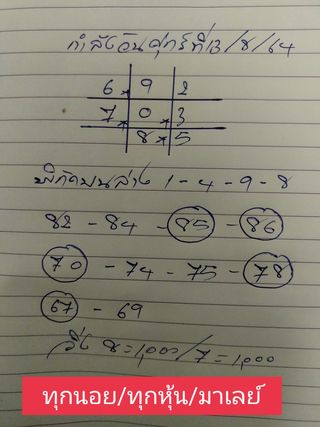 กำลังวันศุกร์ที่13/8/64
6 × 9 2
7 × 0 × 3
8 × 5
พิกัดบนล่าง 1-4-9-8
82 - 84 - 85 - 86
70 - 74 - 75 - 78
67 - 69
วิ่ง 8=1,000/7=1,000
ทุกนอย/ทุกหุ้น/มาเลย์